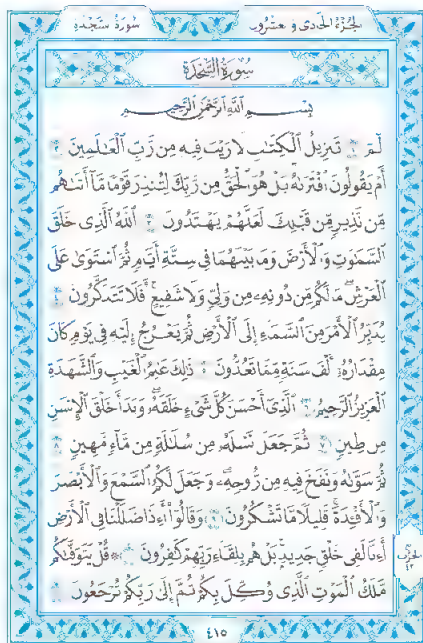 الجزء الحادي وعشرون سورة السجدة
سورة السجدة
بسم الله الرحمن الرحيم
الٓمٓ ١ تَنزِيلُ ٱلْكِتَٰبِ لَا رَيْبَ فِيهِ مِن رَّبِّ ٱلْعَٰلَمِينَ ٢
أَمْ يَقُولُونَ ٱفْتَرَىٰهُ بَلْ هُوَ ٱلْحَقُّ مِن رَّبِّكَ لِتُنذِرَ قَوْمًا مَّآ أَتَىٰهُم
مِّن نَّذِيرٍ مِّن قَبْلِكَ لَعَلَّهُمْ يَهْتَدُونَ ٣ ٱللَّهُ ٱلَّذِى خَلَقَ
ٱلسَّمَٰوَٰتِ وَٱلْأَرْضَ وَمَا بَيْنَهُمَا فِى سِتَّةِ أَيَّامٍ ثُمَّ ٱسْتَوَىٰ عَلَى
ٱلْعَرْشِ مَا لَكُم مِّن دُونِهِۦ مِن وَلِىٍّ وَلَا شَفِيعٍ أَفَلَا تَتَذَكَّرُونَ ٤
يُدَبِّرُ ٱلْأَمْرَ مِنَ ٱلسَّمَآءِ إِلَى ٱلْأَرْضِ ثُمَّ يَعْرُجُ إِلَيْهِ فِى يَوْمٍ كَانَ
مِقْدَارُهُۥٓ أَلْفَ سَنَةٍ مِّمَّا تَعُدُّونَ ٥ ذَٰلِكَ عَٰلِمُ ٱلْغَيْبِ وَٱلشَّهَٰدَةِ
ٱلْعَزِيزُ ٱلرَّحِيمُ ٦ ٱلَّذِىٓ أَحْسَنَ كُلَّ شَىْءٍ خَلَقَهُۥ وَبَدَأَ خَلْقَ ٱلْإِنسَٰنِ
مِن طِينٍ ٧ ثُمَّ جَعَلَ نَسْلَهُۥ مِن سُلَٰلَةٍ مِّن مَّآءٍ مَّهِينٍ ٨
ثُمَّ سَوَّىٰهُ وَنَفَخَ فِيهِ مِن رُّوحِهِۦ وَجَعَلَ لَكُمُ ٱلسَّمْعَ وَٱلْأَبْصَٰرَ
وَٱلْأَفْـِٔدَةَ قَلِيلًا مَّا تَشْكُرُونَ ٩ وَقَالُوٓا۟ أَءِذَا ضَلَلْنَا فِى ٱلْأَرْضِ
أَءِنَّا لَفِى خَلْقٍ جَدِيدٍۭ بَلْ هُم بِلِقَآءِ رَبِّهِمْ كَٰفِرُونَ ١٠ ۞ قُلْ يَتَوَفَّىٰكُم
مَّلَكُ ٱلْمَوْتِ ٱلَّذِى وُكِّلَ بِكُمْ ثُمَّ إِلَىٰ رَبِّكُمْ تُرْجَعُونَ ١١
الحزب
٤٢
٤١٥